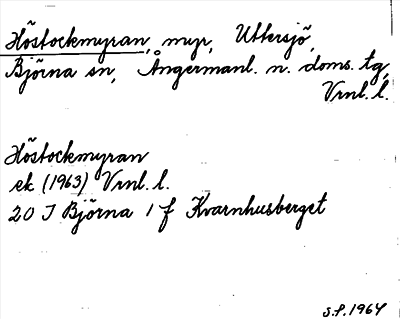 Höstockmyran, myr, Uttersjö,
Björna sn, Ångermanl. n. doms. tg,
Vrnl. l.
Höstockmyran
ek (1963) Vrnl. l.
20 I Björna 1 f Kvarnhusberget
S.F. 1964